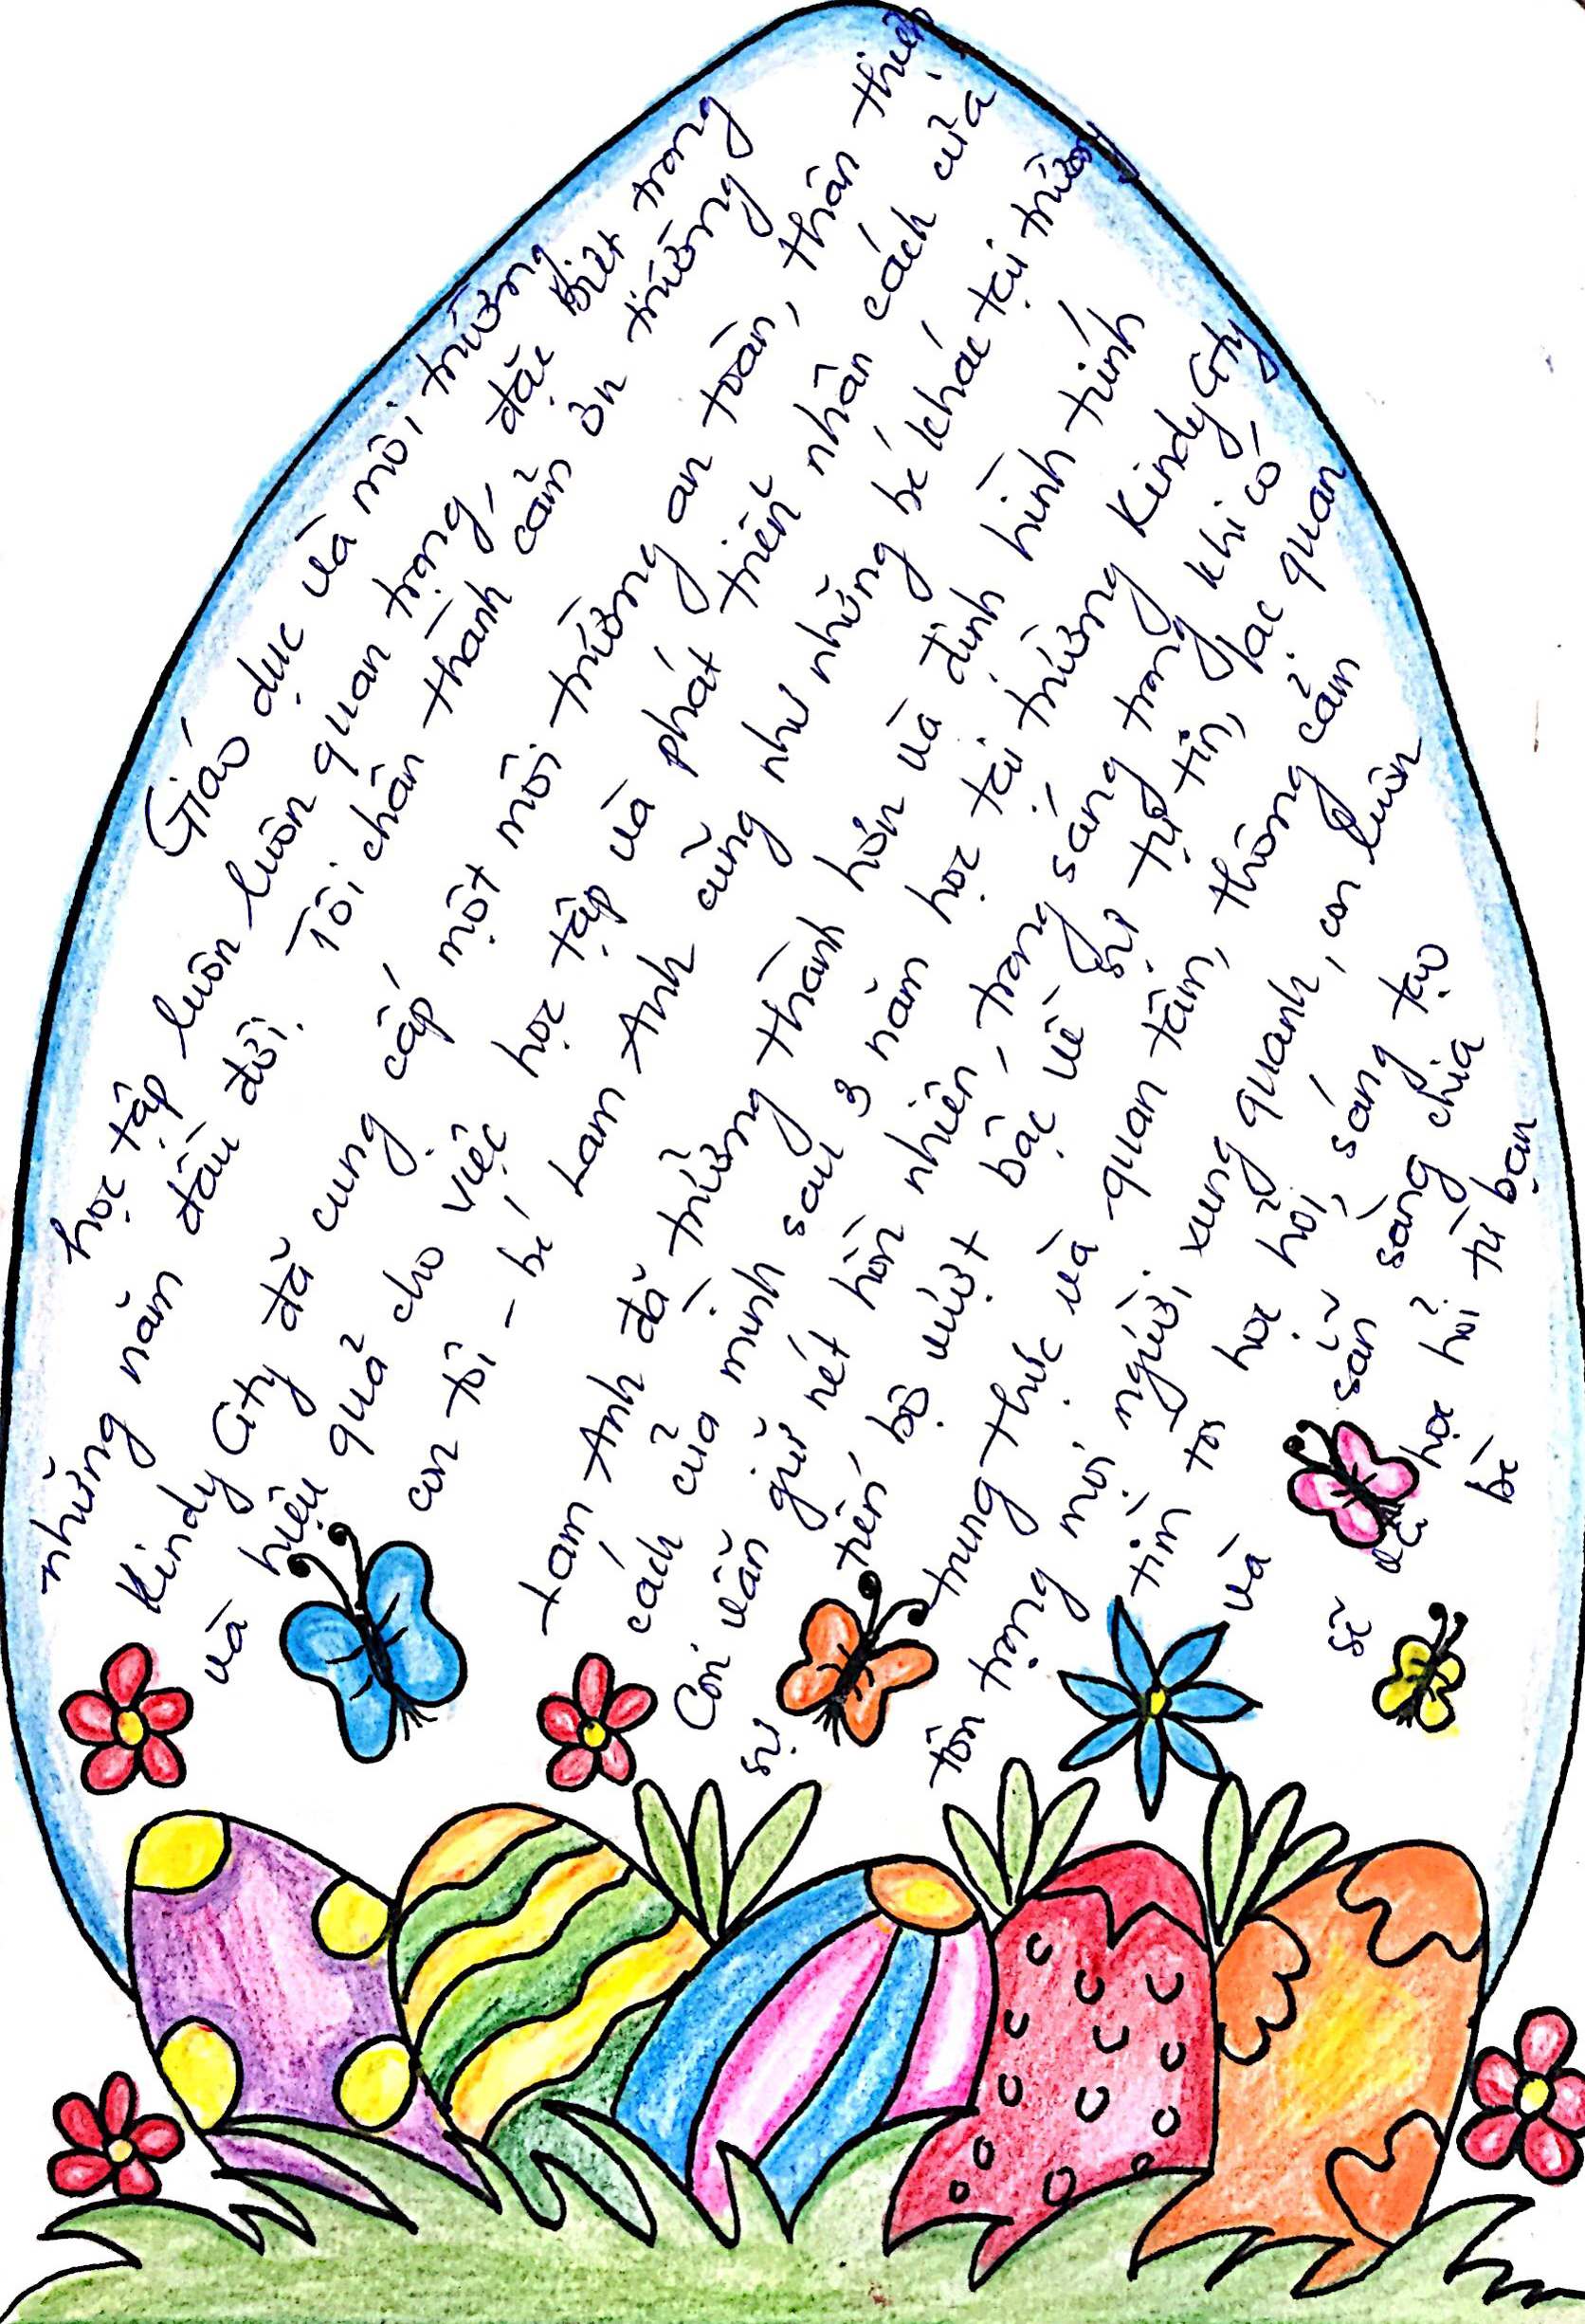 Giáo dục và môi trường
học tập luôn luôn quan trọng, đặc biệt trong
những năm đầu đời. Tôi chân thành cảm ơn trường
Kindy City đã cung cấp một môi trường an toàn, thân thiện
và hiệu quả cho việc học tập và phát triển nhân cách của
con tôi - bé Lam Anh cũng như những bé khác tại trường
Lam Anh đã trưởng thành hơn và định hình tính
cách của mình sau 3 năm học tại trường Kindy City
Con vẫn giữ nét hồn nhiên, trong sáng trong khi có
sự tiến bộ vượt bậc về sự tự tin, lạc quan
trung thực và quan tâm, thông cảm
tôn trọng mọi người xung quanh, con luôn
tìm tòi học hỏi, sáng tạo
và sẵn sàng chia
sẽ và học hỏi từ bạn
bè